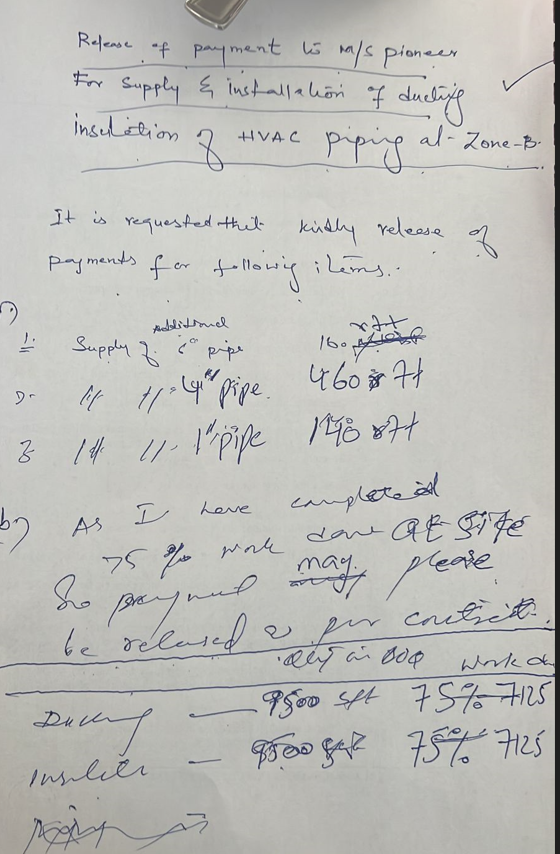 Release of payment to M/S pioneer
For Supply & installation of ducting
insulation of HVAC piping at Zone-B.
It is requested that kindly release of
payments for following items.
1. Supply of additional 6" pipe 160 rft
2- " " 4" pipe. 460 rft
3 " " 1" pipe 140 rft
b) As I have completed
75 % work done at site
So payment may please
be released as per contract.
qty in BOQ work do
Ducting — 9500 sft 75% 7125
Insulatio — 9500 sft 75% 7125